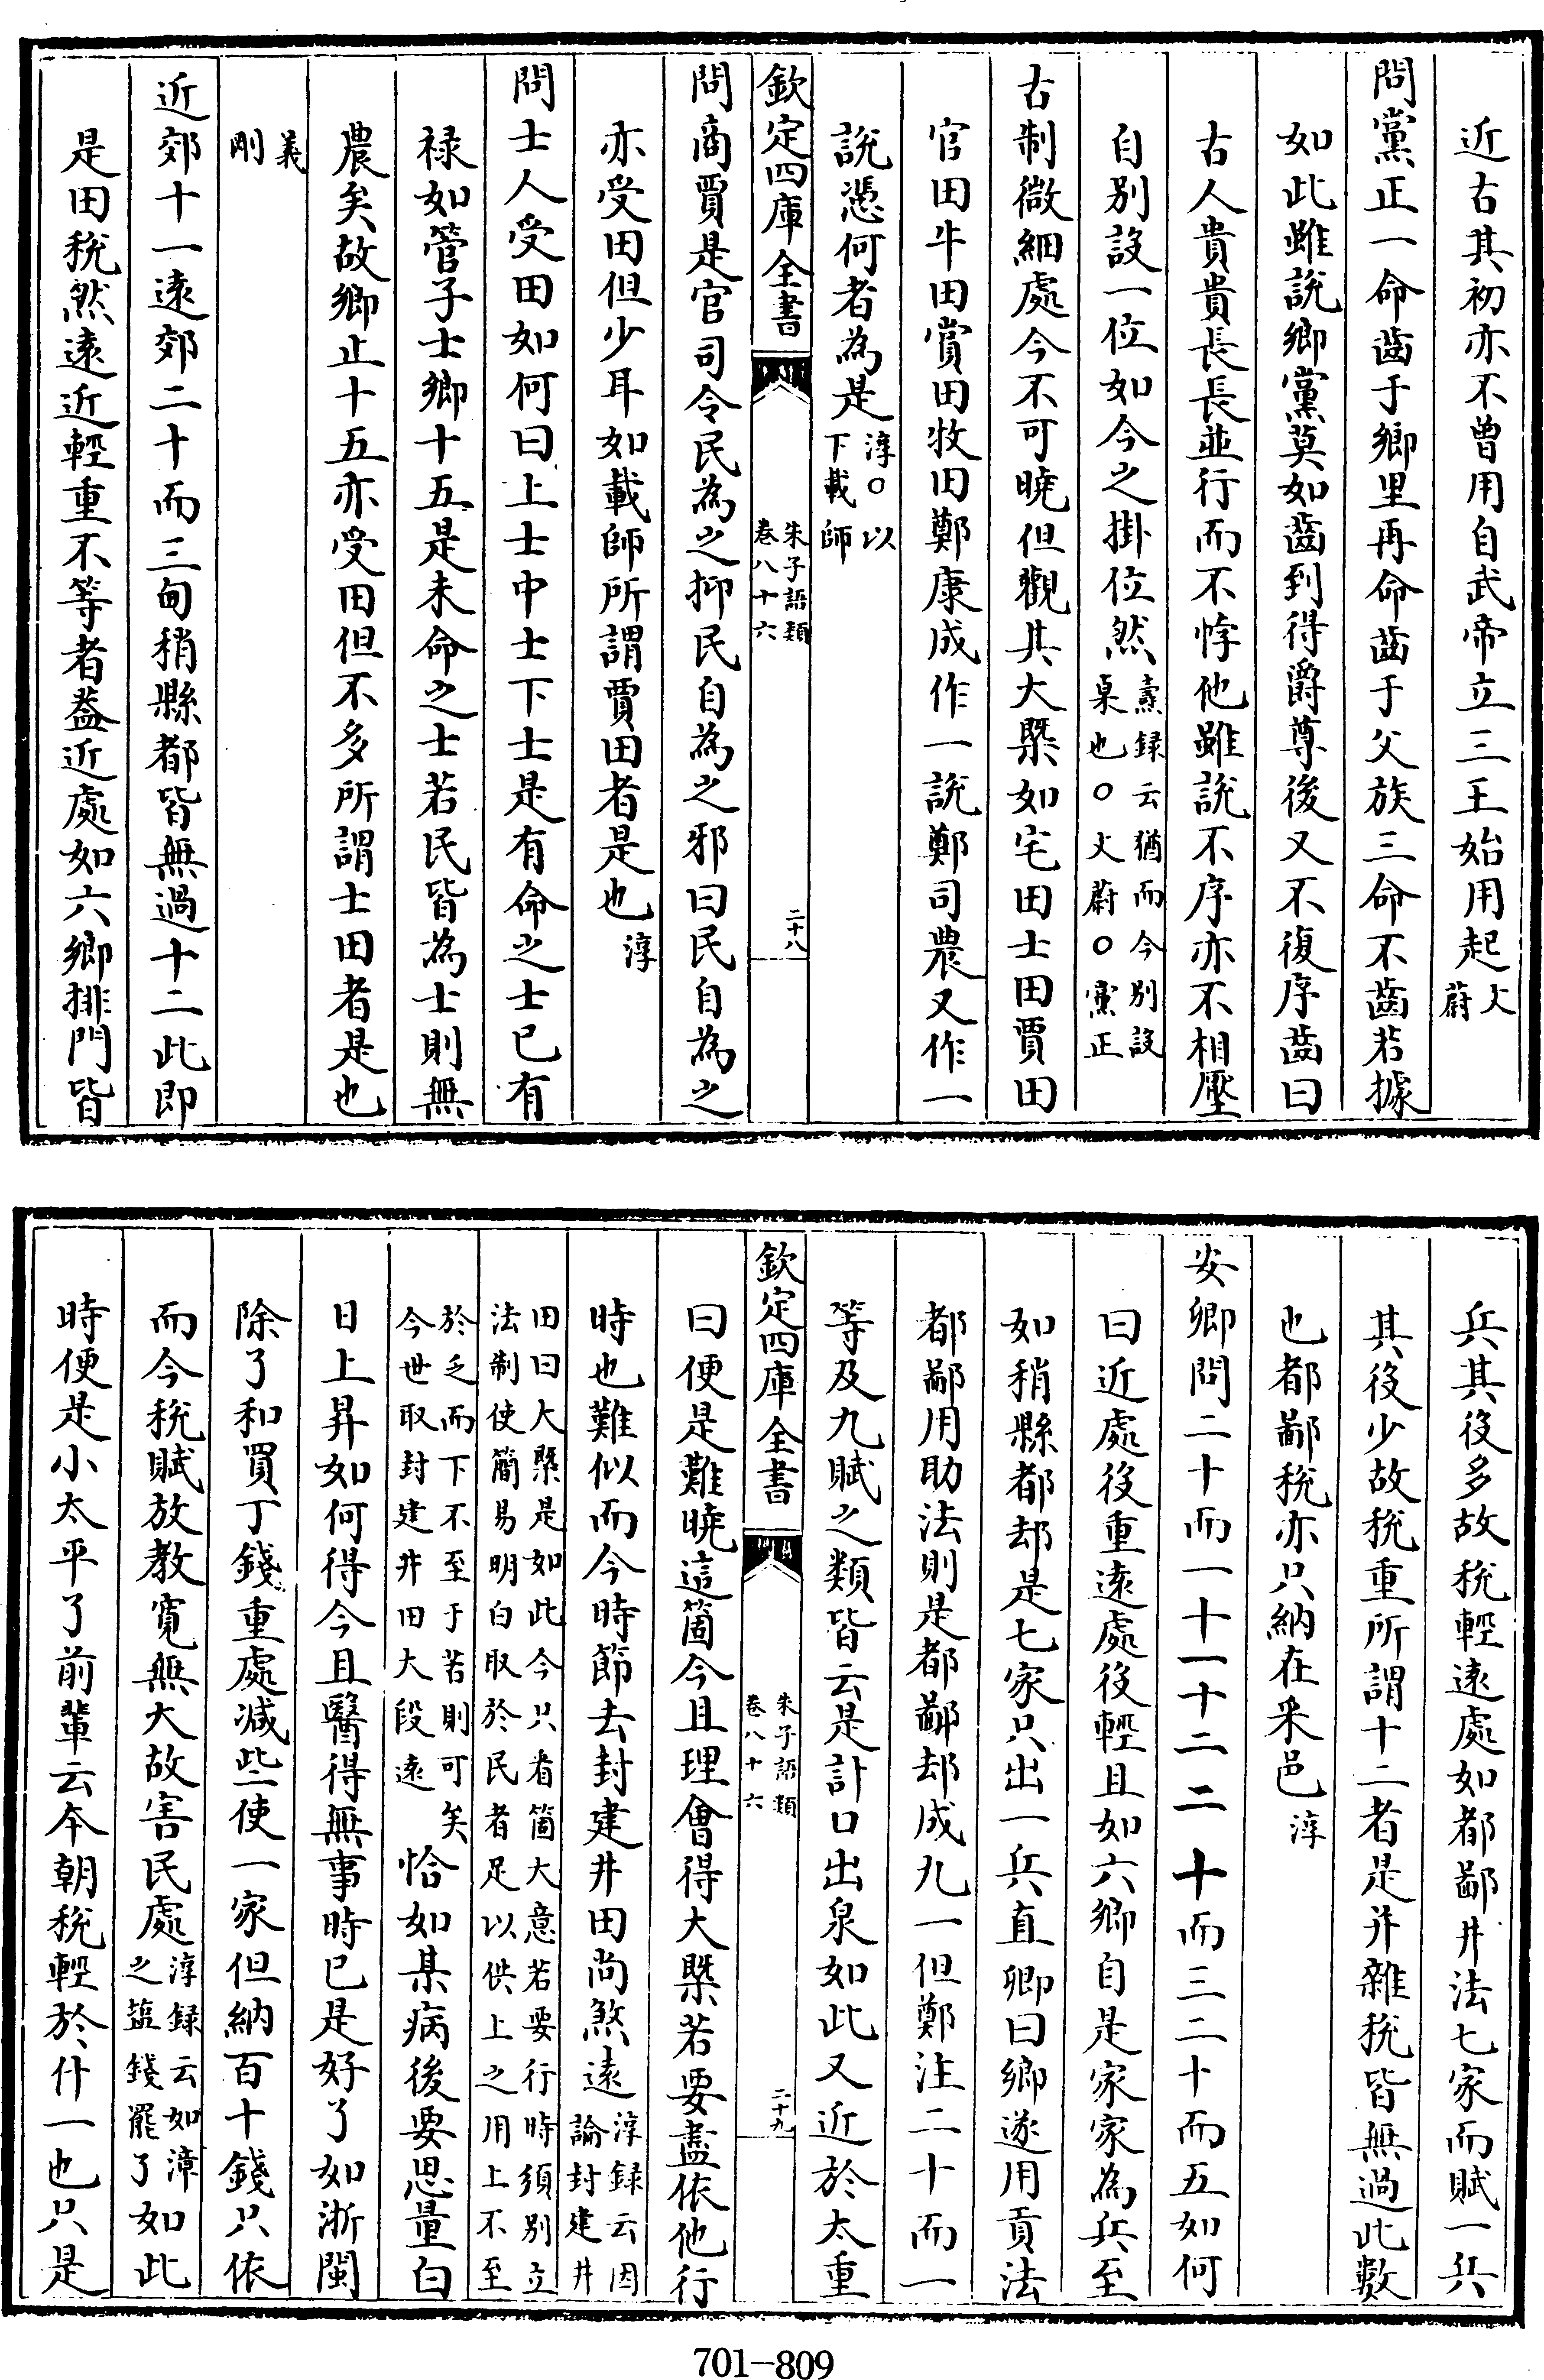 近古其初亦不曾用自武帝立三王始用起文蔚
問黨正一命齒于鄉里再命齒于父族三命不齒若據
如此雖說鄉黨莫如齒到得爵尊後又不復序齒曰
古人貴貴長長並行而不悖他雖說不序亦不相壓
自別設一位如今之掛位然燾録云猶而今別設桌也○文蔚○黨正
古制微細處今不可曉但觀其大槩如宅田士田賈田
官田牛田賞田牧田鄭康成作一說鄭司農又作一
說憑何者為是淳○以下載師
欽定四庫全書
朱子語類
卷八十六
二十八
問商賈是官司令民為之抑民自為之邪曰民自為之
亦受田但少耳如載師所謂賈田者是也淳
問士人受田如何曰上士中士下士是有命之士已有
禄如管子士鄉十五是未命之士若民皆為士則無
農矣故鄉止十五亦受田但不多所謂士田者是也
義剛
近郊十一遠郊二十而三甸稍縣都皆無過十二此即
是田稅然遠近輕重不等者蓋近處如六鄉排門皆
兵其役多故稅輕遠處如都鄙井法七家而賦一兵
其役少故稅重所謂十二者是并雜稅皆無過此數
也都鄙稅亦只納在采邑淳
安卿問二十而一十一十二二十而三二十而五如何
曰近處役重遠處役輕且如六鄉自是家家為兵至
如稍縣都却是七家只出一兵直卿曰鄉遂用貢法
都鄙用助法則是都鄙却成九一但鄭注二十而一
等及九賦之類皆云是計口出泉如此又近於太重
欽定四庫全書
朱子語類
卷八十六
二十九
曰便是難曉這箇今且理會得大槩若要盡依他行
時也難似而今時節去封建井田尚煞遠淳録云因論封建井
田曰大槩是如此今只看箇大意若要行時須別立法制使簡易明白取於民者足以供上之用上不至
於乏而下不至于苦則可矣今世取封建井田大段遠恰如某病後要思量白
日上昇如何得今且醫得無事時已是好了如浙閩
除了和買丁錢重處減些使一家但納百十錢只依
而今稅賦放教寬無大故害民處淳録云如漳之鹽錢罷了如此
時便是小太平了前輩云本朝稅輕於什一也只是
701-809